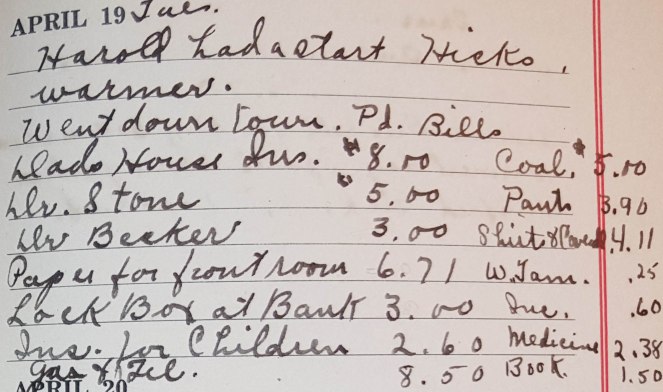 APRIL 19 Tues.
Harold had a start Hicks,
warmer.
Went down town. Pd. Bills
Dads House Ins. $8.00 Coal. $5.00
Dr. Stone $5.00 Pants 3.90
Dr Becker 3.00 Shirt & 4.11
Paper for front room 6.71 W. Jam. .25
Lock Box at Bank 3.00 Inc. .60
Ins. for Children 2.60 Medicine 2.38
Gas & Ele. 8.50 Book. 1.50
APRIL 20